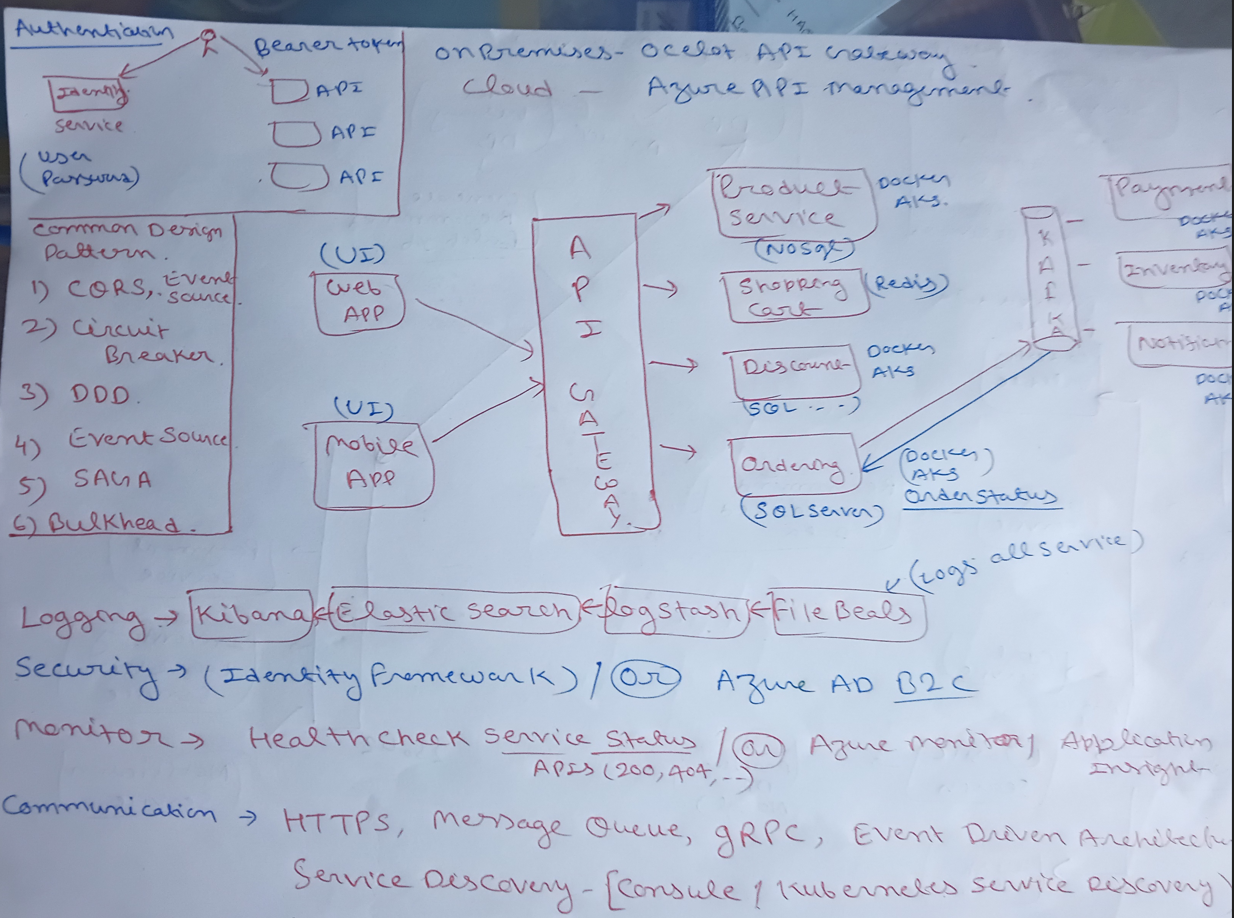 Authentication
Bearer token
Identity
Service
(User
Password)
API
API
API
On Premises - Ocelot API Gateway.
Cloud - Azure API Management.
Common Design
Pattern.
1) CQRS, Event
Source.
2) Circuit
Breaker.
3) DDD.
4) Event Source
5) SAGA
6) Bulkhead.
(UI)
Web
APP
(UI)
Mobile
APP
API GATEWAY.
Product
Service
(NoSql)
Docker
AKS.
Shopping
Cart
(Redis)
Discount
(SQL ...)
Docker
AKS
Ordering.
(SQL Server)
(Docker)
AKS
Order Status
KAFKA
Payment
Docke
AKS
Inventory
Dock
A
Notification
Dock
AK
(Logs all service)
Logging → Kibana ← Elastic Search ← Logstash ← File Beats
Security → (Identity Framework) / OR Azure AD B2C
Monitor → Health Check Service Status / OR Azure Monitor / Application
APIs (200, 404, ...) Insight
Communication → HTTPS, Message Queue, gRPC, Event Driven Architectu
Service Discovery - [Consule / Kubernetes Service Discovery)